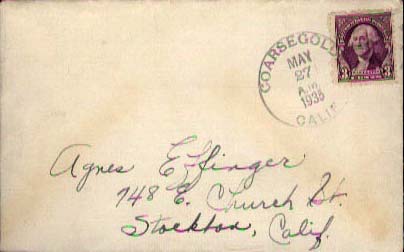 COARSEGOLD
MAY
27
A.M.
1935
CALIF.
3 CENTS 3
Agnes Effinger
748 E. Church St.
Stockton, Calif.